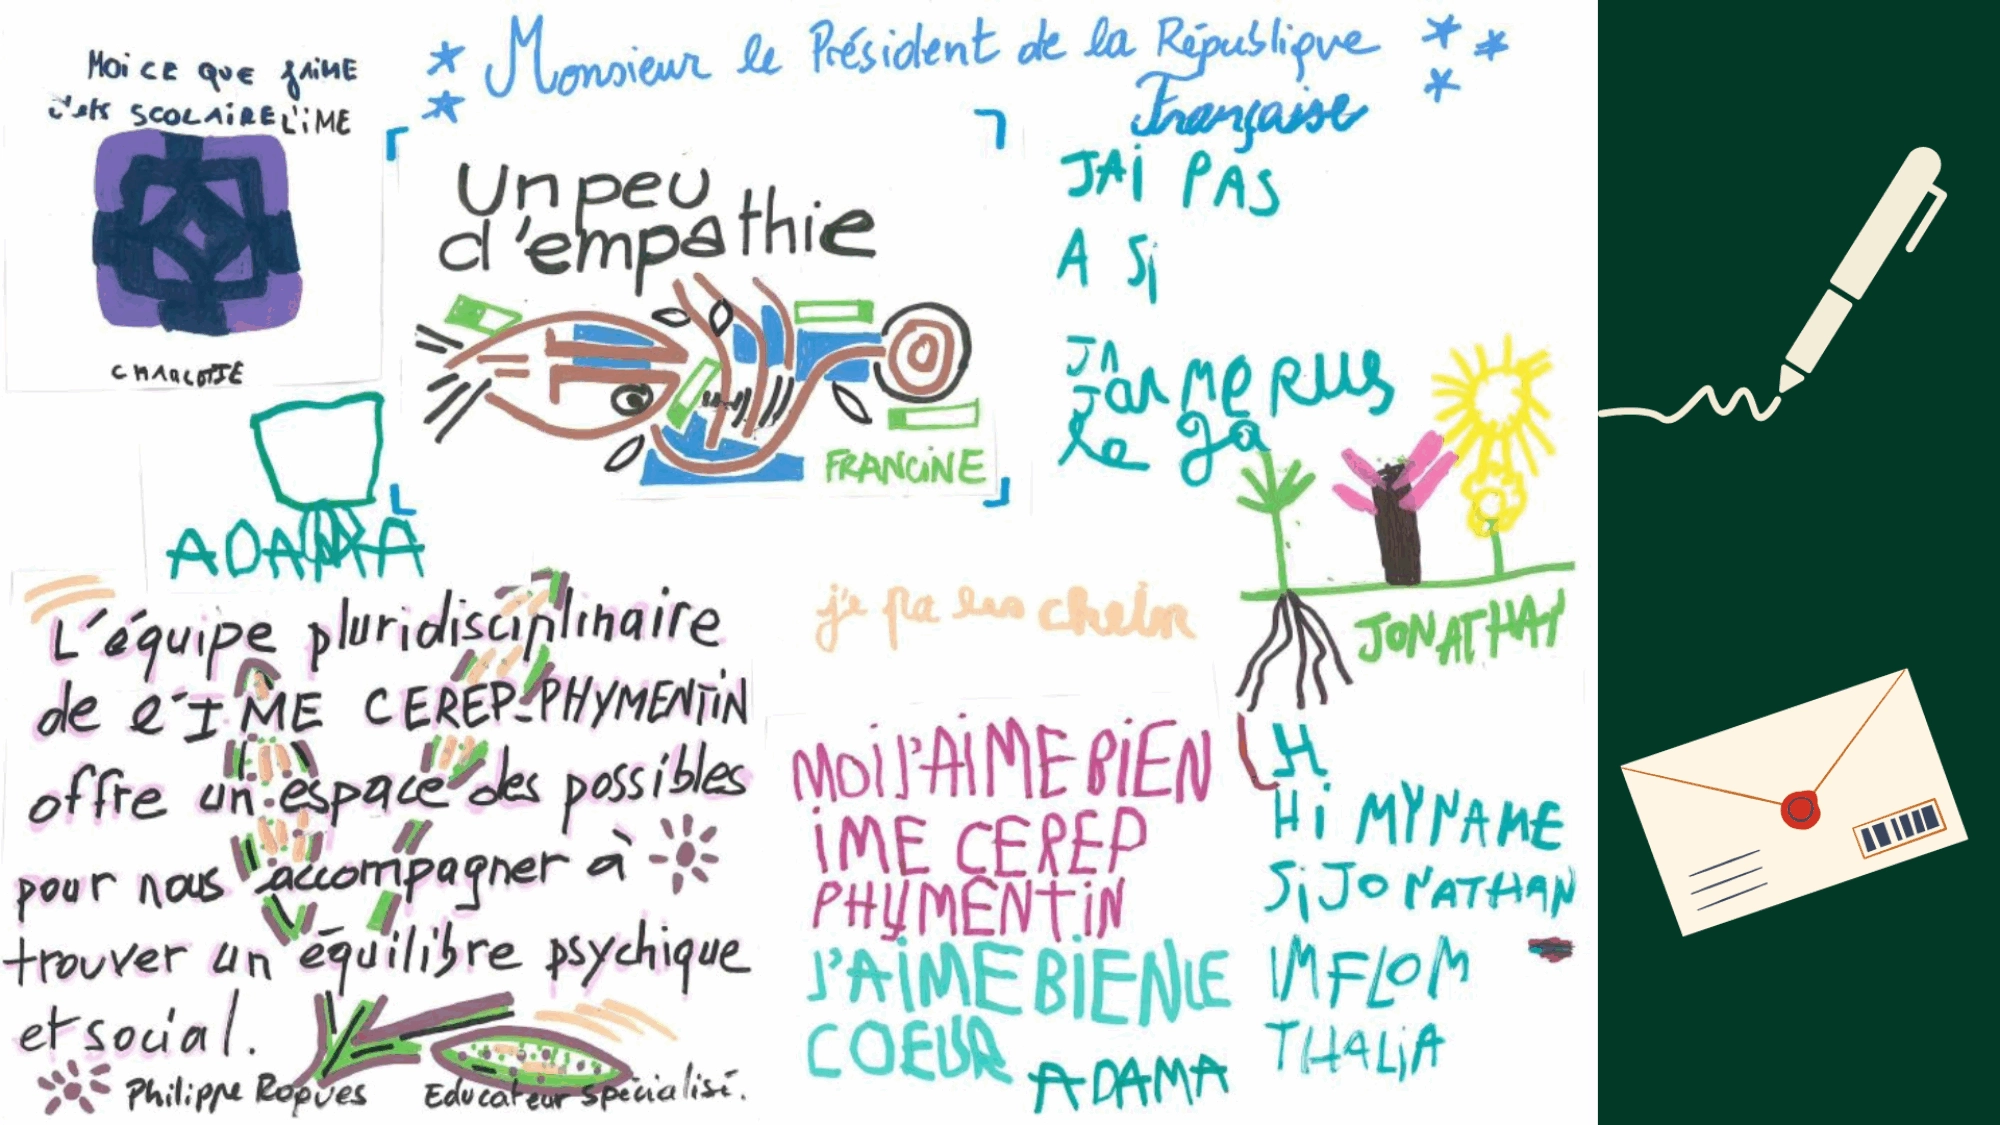 Moi CE QUE J'AIME
SCOLAIRE L'IME
CHARLOTTE
Monsieur le Président de la République
Française
Un peu
d'empathie
FRANCINE
JAI PAS
A Si
ME RUS
le
ADAMA
JONATHAN
L'équipe pluridisciplinaire
de l'IME CEREP-PHYMENTIN
offre un espace des possibles
pour nous accompagner à
trouver un équilibre psychique
et social.
Philippe Roques Educateur Spécialisé.
MOI J'AIME BIEN
IME CEREP
PHYMENTIN
J'AIME BIEN LE
COEUR
ADAMA
H
Hi MY NAME
Si JONATHAN
IM FLOM
THALIA